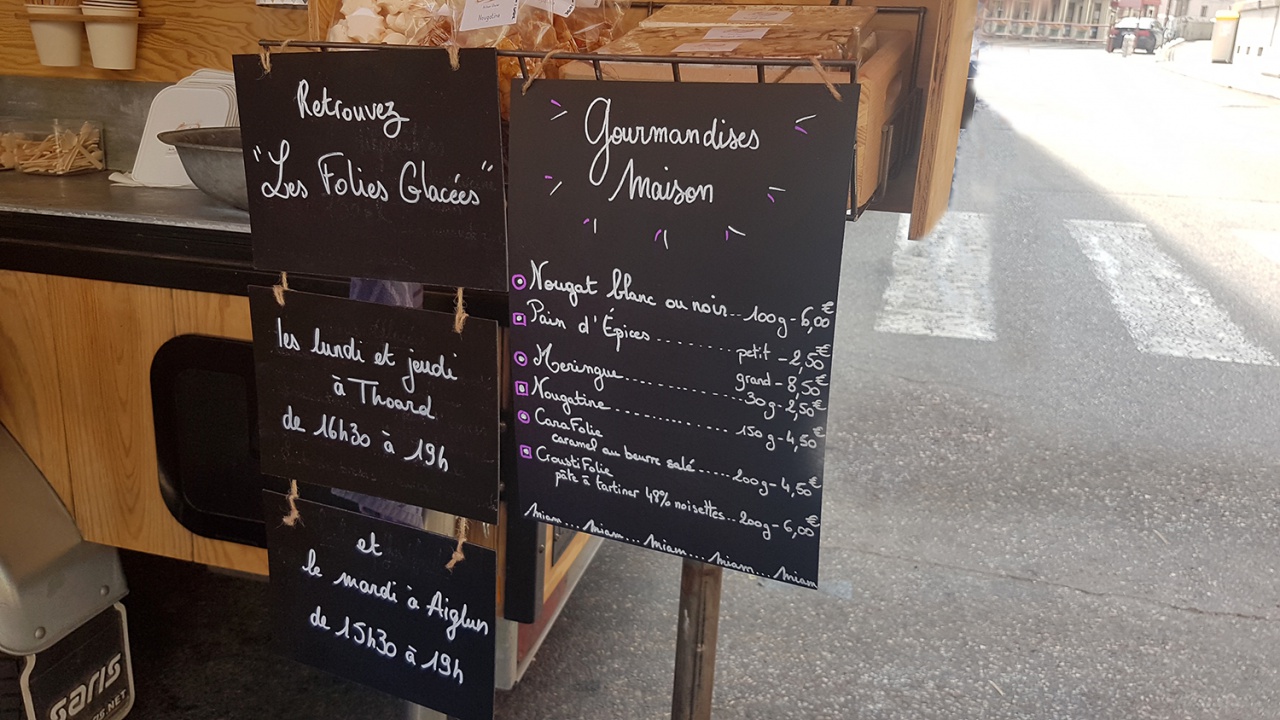 Nougatine
Retrouvez
"Les Folies Glacées"
les lundi et jeudi
à Thoard
de 16h30 à 19h
et
le mardi à Aiglun
de 15h30 à 19h
Gourmandises
Maison
Nougat blanc ou noir... 100g - 6,00€
Pain d'Épices........ petit - 2,50€
grand - 8,50€
Meringue............ 30g - 2,50€
Nougatine............ 150g - 4,50€
CaraFolie
caramel au beurre salé...... 200g - 4,50€
CroustiFolie
pâte à tartiner 48% noisettes.. 200g - 6,00€
miam... miam... miam... miam... miam
saris
.NET